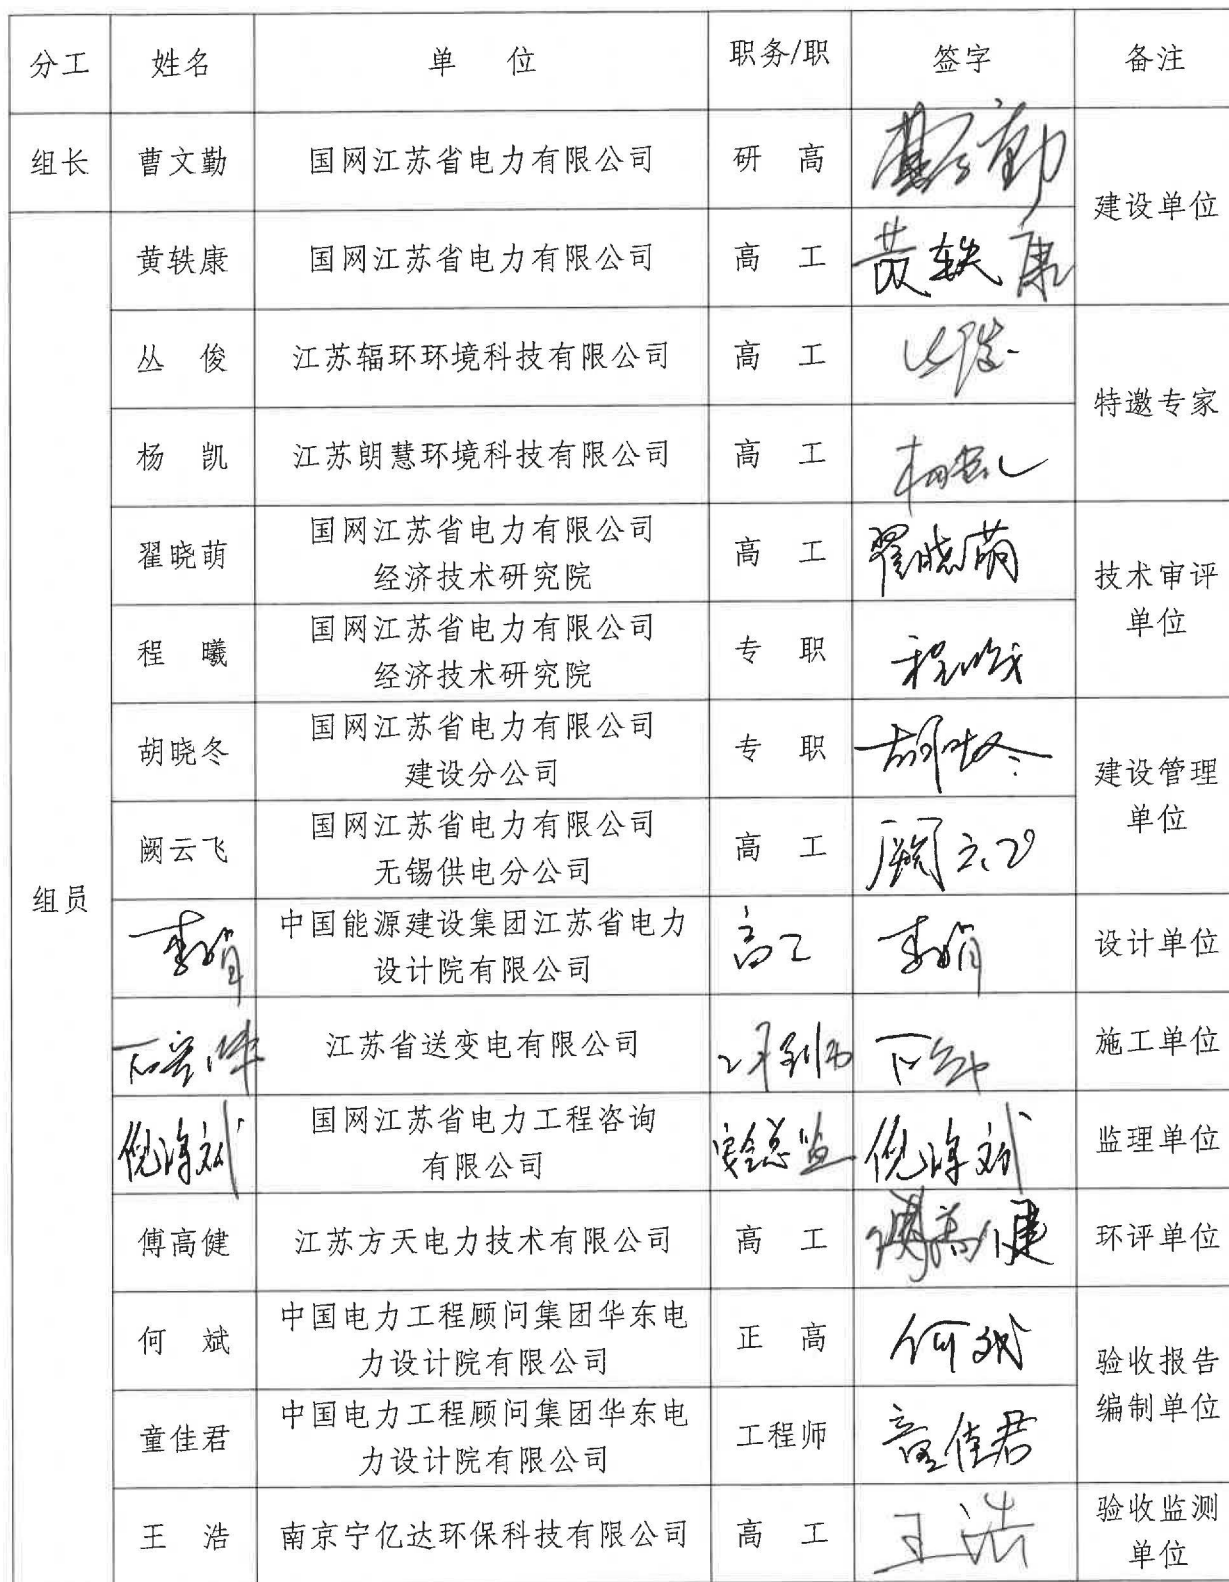 分工 姓名 单 位 职务/职 签字 备注
组长 曹文勤 国网江苏省电力有限公司 研 高 曹文勤
建设单位
黄轶康 国网江苏省电力有限公司 高 工 黄轶康
丛 俊 江苏辐环环境科技有限公司 高 工 丛俊
特邀专家
杨 凯 江苏朗慧环境科技有限公司 高 工 杨凯
翟晓萌 国网江苏省电力有限公司
经济技术研究院 高 工 翟晓萌
技术审评
单位
程 曦 国网江苏省电力有限公司
经济技术研究院 专 职 程曦
胡晓冬 国网江苏省电力有限公司
建设分公司 专 职 胡晓冬
建设管理
单位
阙云飞 国网江苏省电力有限公司
无锡供电分公司 高 工 阙云飞
组员
李娟 中国能源建设集团江苏省电力
设计院有限公司 高工 李娟 设计单位
江苏省送变电有限公司 施工单位
国网江苏省电力工程咨询
有限公司 安全总监 监理单位
傅高健 江苏方天电力技术有限公司 高 工 傅高健 环评单位
何 斌 中国电力工程顾问集团华东电
力设计院有限公司 正 高 何斌
验收报告
编制单位
童佳君 中国电力工程顾问集团华东电
力设计院有限公司 工程师 童佳君
王 浩 南京宁亿达环保科技有限公司 高 工 王浩 验收监测
单位